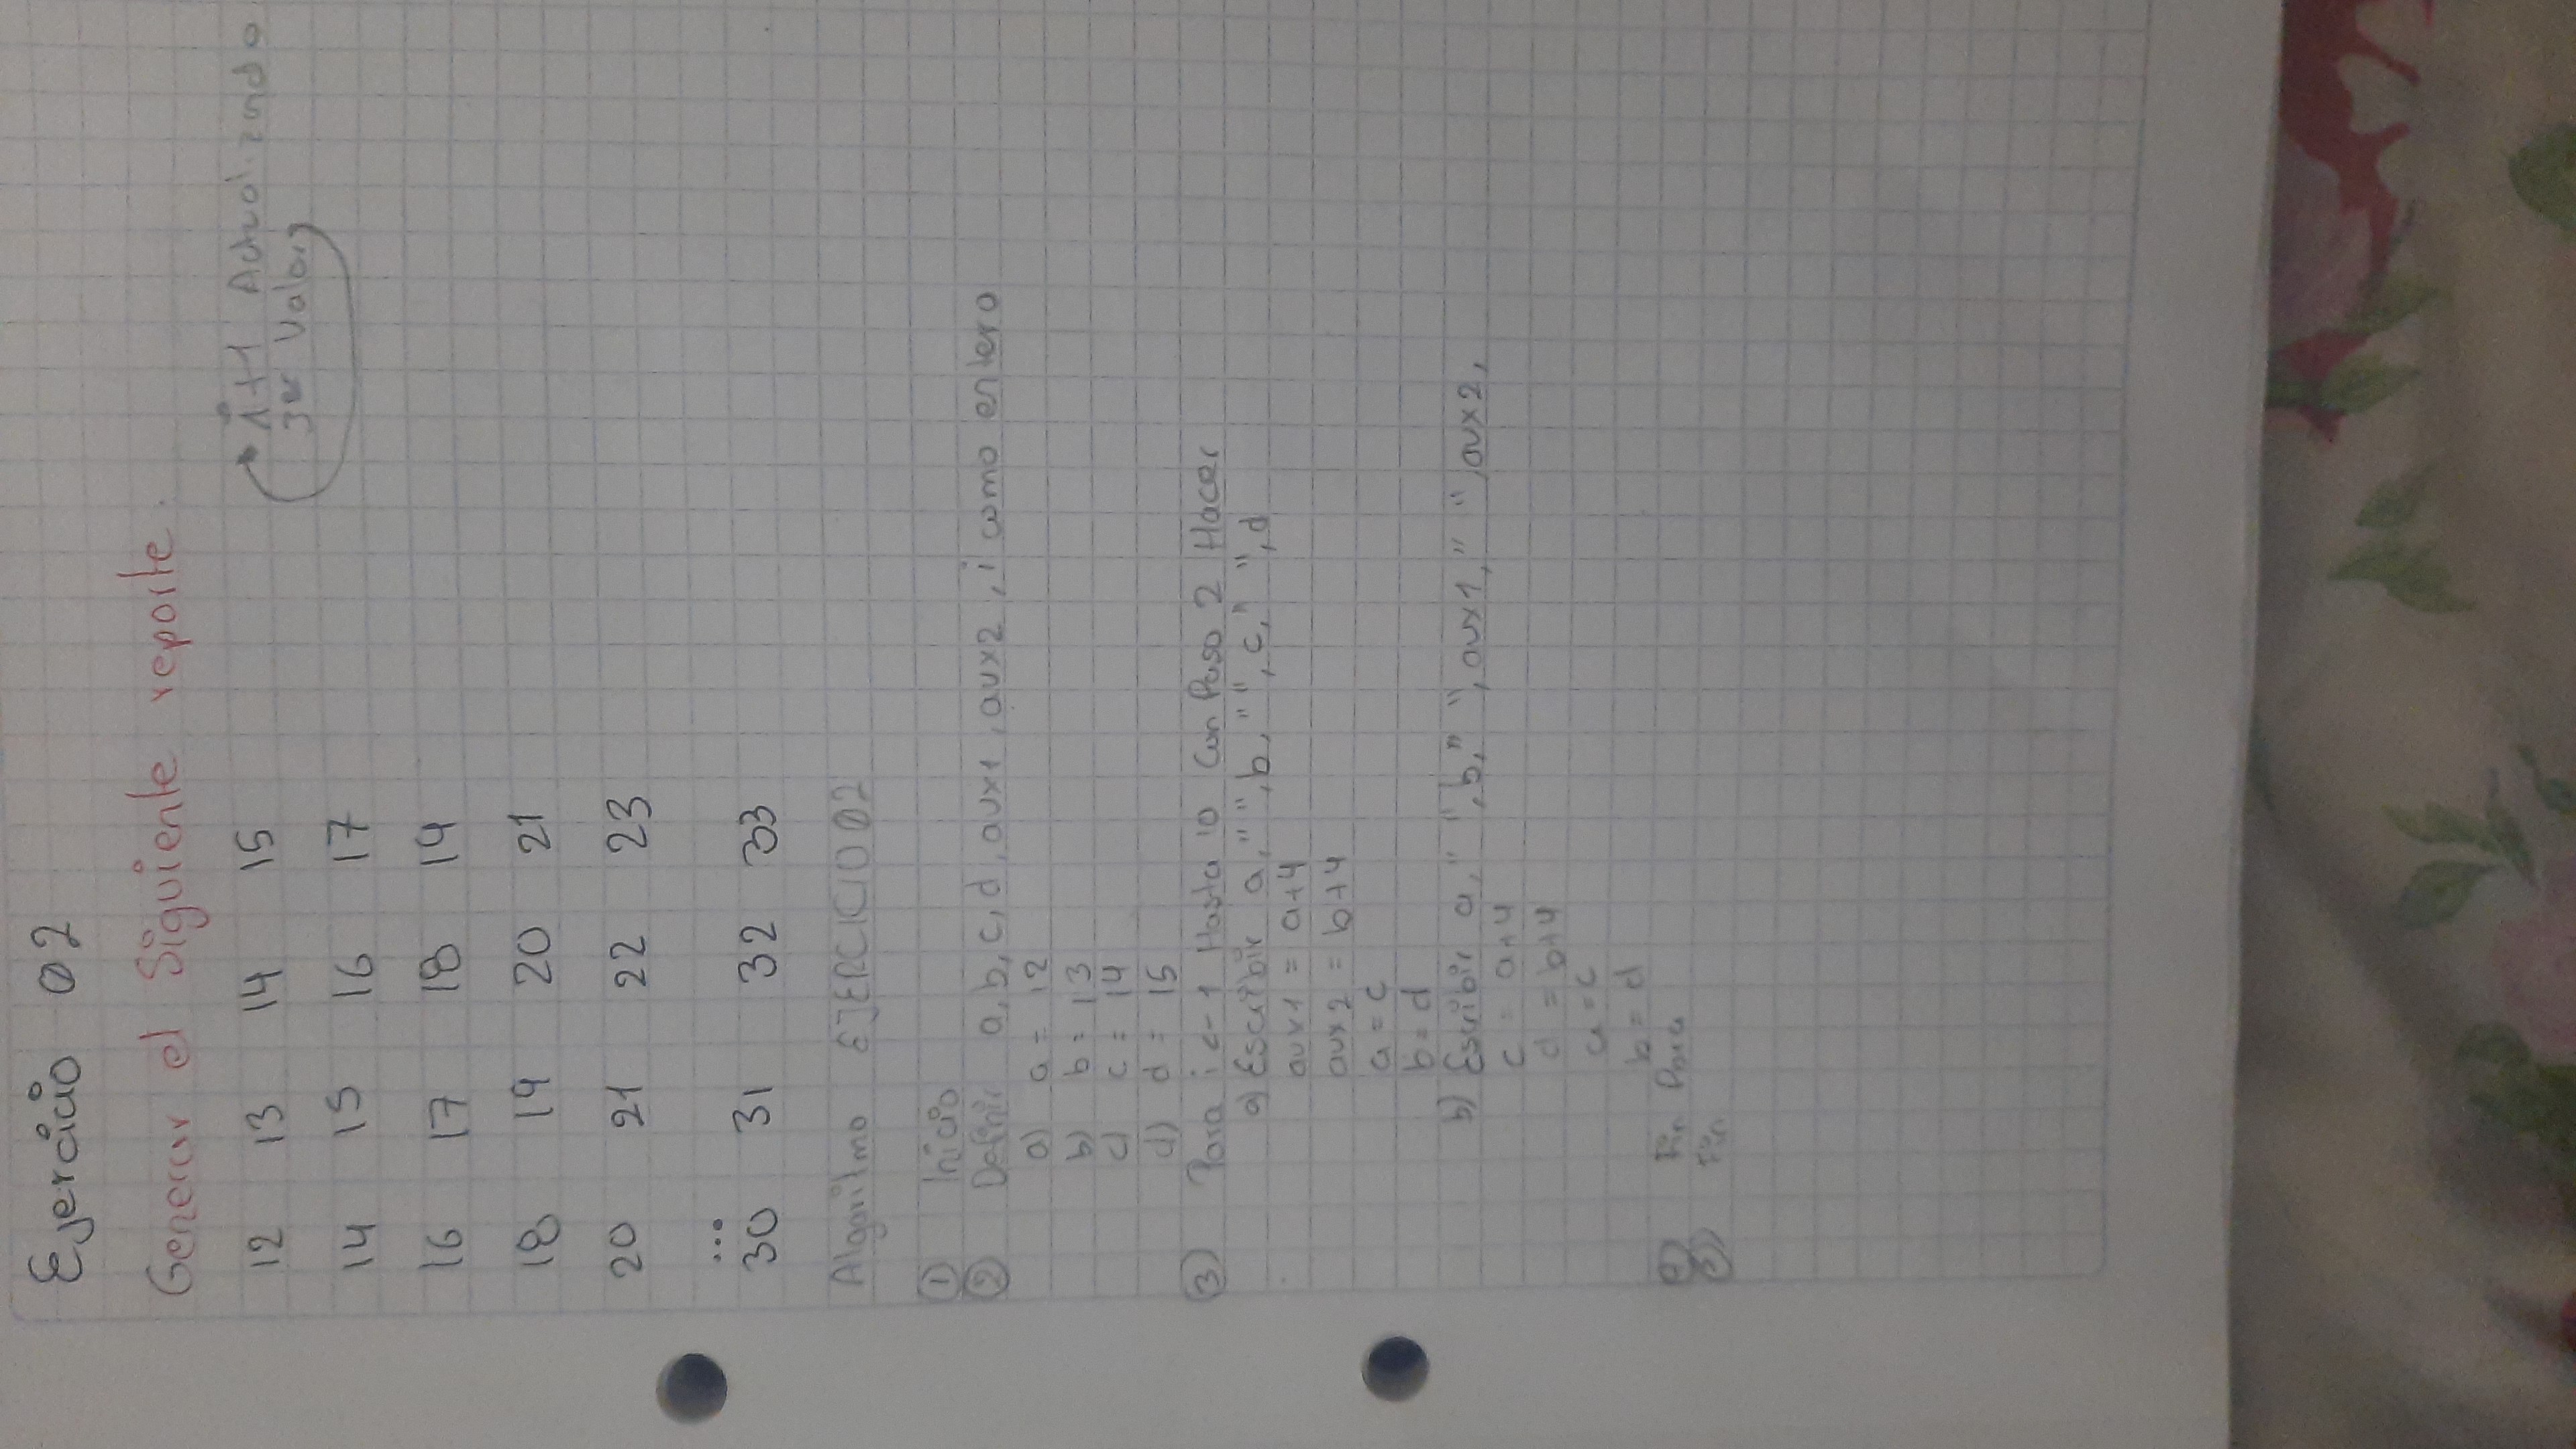 Ejercicio 02
Generar el Siguiente reporte.
12 13 14 15
i+1 Actualizando
3er Valor
14 15 16 17
16 17 18 19
18 19 20 21
20 21 22 23
...
30 31 32 33
Algoritmo EJERCICIO 02
① Inicio
② Definir a, b, c, d, aux1, aux2, i como entero
a) a = 12
b) b = 13
c) c = 14
d) d = 15
③ Para i <- 1 Hasta 10 Con Paso 2 Hacer
a) Escribir a, " ", b, " ", c, " ", d
aux1 = a+4
aux2 = b+4
a = c
b = d
b) Escribir a, " ", b, " ", aux1, " " aux2,
c = a+4
d = b+4
a = c
b = d
Fin Para
Fin